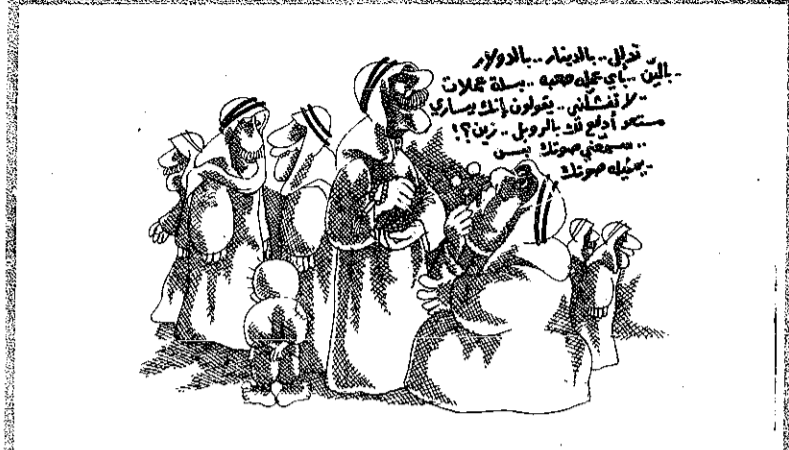 تدلل.. بالدينار.. بالدولار
بالين.. بأي عمله صعبه.. بسلة عملات
.. لا تفشلني.. يقولون إنك يساري
مستعد أدفع لك بالروبل.. زين؟!
.. سمعني صوتك بس
.. صوتك